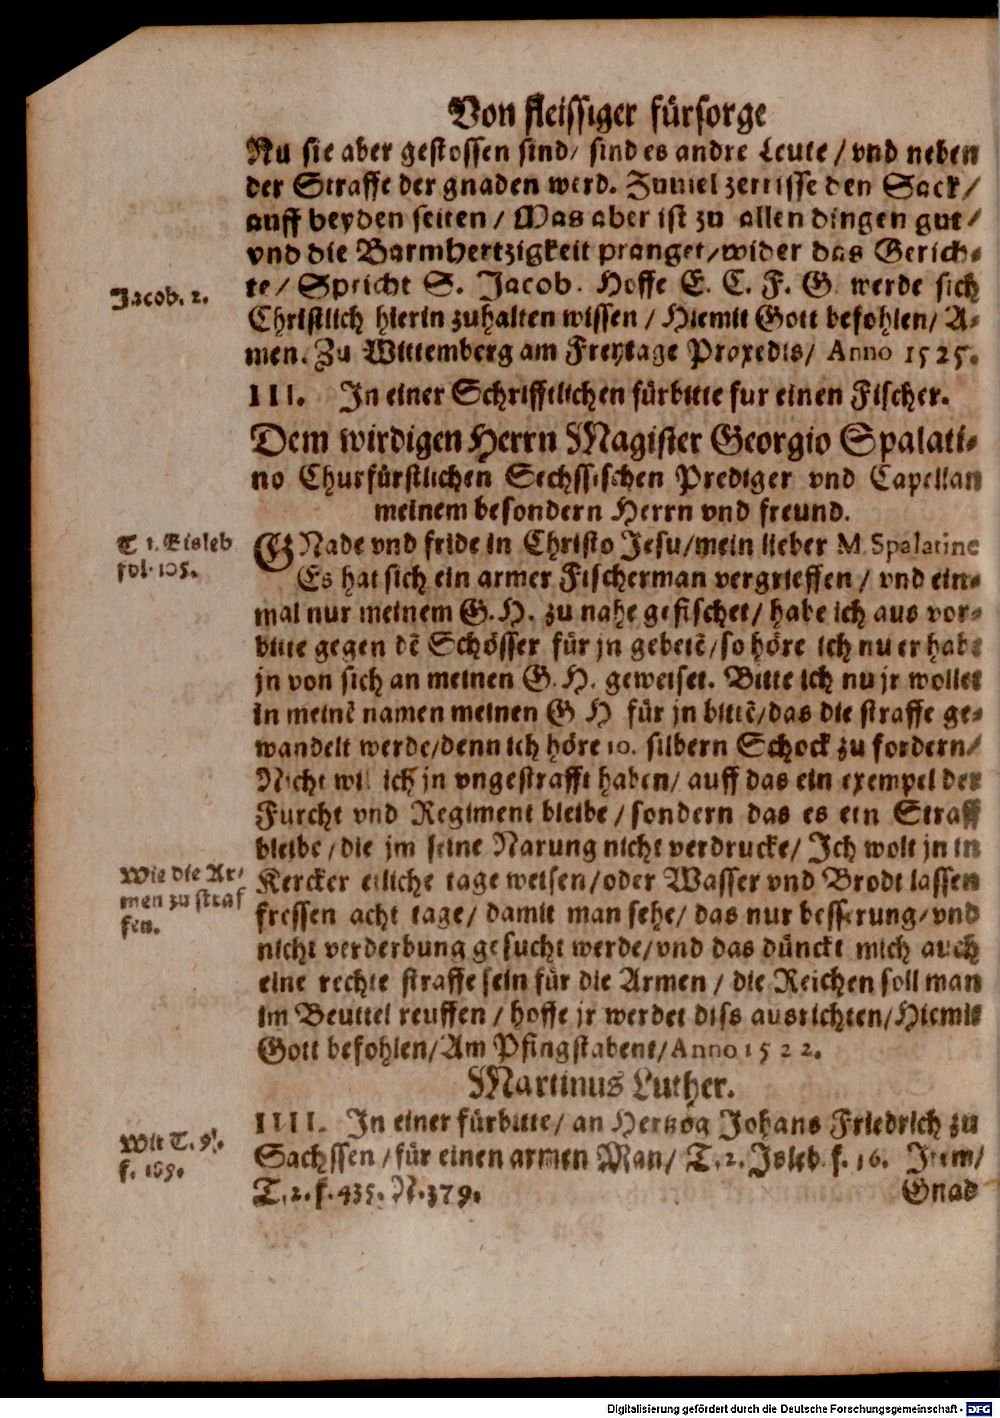 Von fleissiger fürsorge
Nu sie aber gestossen sind/ sind es andre Leute / vnd neben
der Strasse der gnaden werd. Zumel zerrisse den Sack/
auff beyden seiten / Was aber ist zu allen dingen gut/
vnd die Barmhertzigkeit pranget/wider das Gerich-
Jacob. 2.
te/ Spricht S. Jacob. Hoffe E. C. F. G. werde sich
Christlich hierin zuhalten wissen / Hiemit Gott befohlen/ A-
men. Zu Wittemberg am Freytage Proxedis/ Anno 1525.
III. In einer Schrifftlichen fürbitte fur einen Fischer.
Dem wirdigen Herrn Magister Georgio Spalati-
no Churfürstlichen Sechssischen Prediger vnd Capellan
meinem besondern Herrn vnd freund.
T 1. Eisleb
fol. 105.
GNade vnd fride in Christo Jesu/mein lieber M. Spalatine
Es hat sich ein armer Fischerman vergrieffen / vnd ein-
mal nur meinem G. H. zu nahe gefischet/ habe ich aus vor-
bitte gegen dẽ Schösser für jn gebetẽ/so höre ich nu er habe
jn von sich an meinen G. H. geweiset. Bitte ich nu jr wollet
in meinẽ namen meinen G H für jn bittẽ/das die straffe ge-
wandelt werde/denn ich höre 10. silbern Schock zu fordern/
Nicht wil ich jn vngestrafft haben/ auff das ein exempel der
Furcht vnd Regiment bleibe / sondern das es ein Straff
bleibe / die jm seine Narung nicht verdrucke/ Ich wolt jn in
Wie die Ar-
men zu straf
fen.
Kercker etliche tage weisen/oder Wasser vnd Brodt lassen
fressen acht tage/ damit man sehe/ das nur besserung/vnd
nicht verderbung gesucht werde/vnd das dünckt mich auch
eine rechte straffe sein für die Armen / die Reichen soll man
im Beuttel reuffen / hoffe jr werdet diss ausrichten/Hiemit
Gott befohlen/Am Pfingstabent/Anno 1522.
Martinus Luther.
Wit T. 9.
f. 165.
IIII. In einer fürbitte/ an Hertzog Johans Friedrich zu
Sachssen / für einen armen Man/ T. 2. Isleb f. 16. Item/
T. 2. f. 435. N. 379.
Gnad
Digitalisierung gefördert durch die Deutsche Forschungsgemeinschaft - DFG